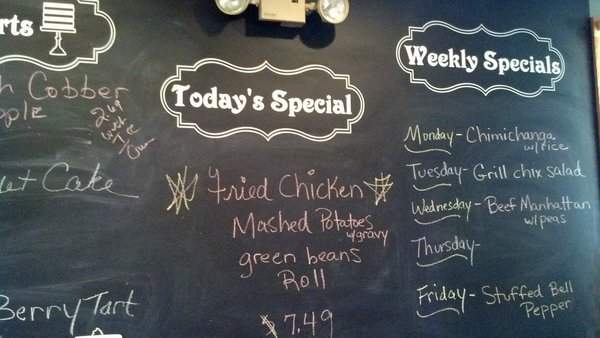 rts
h Cobber
pple
2.49
with
Ice
Cream
et Cake
Berry Tart
Today's Special
Fried Chicken
Mashed Potatoes
w/gravy
green beans
Roll
$7.49
Weekly Specials
Monday- Chimichanga
w/rice
Tuesday- Grill chix salad
Wednesday- Beef Manhattan
w/peas
Thursday-
Friday- Stuffed Bell
Pepper